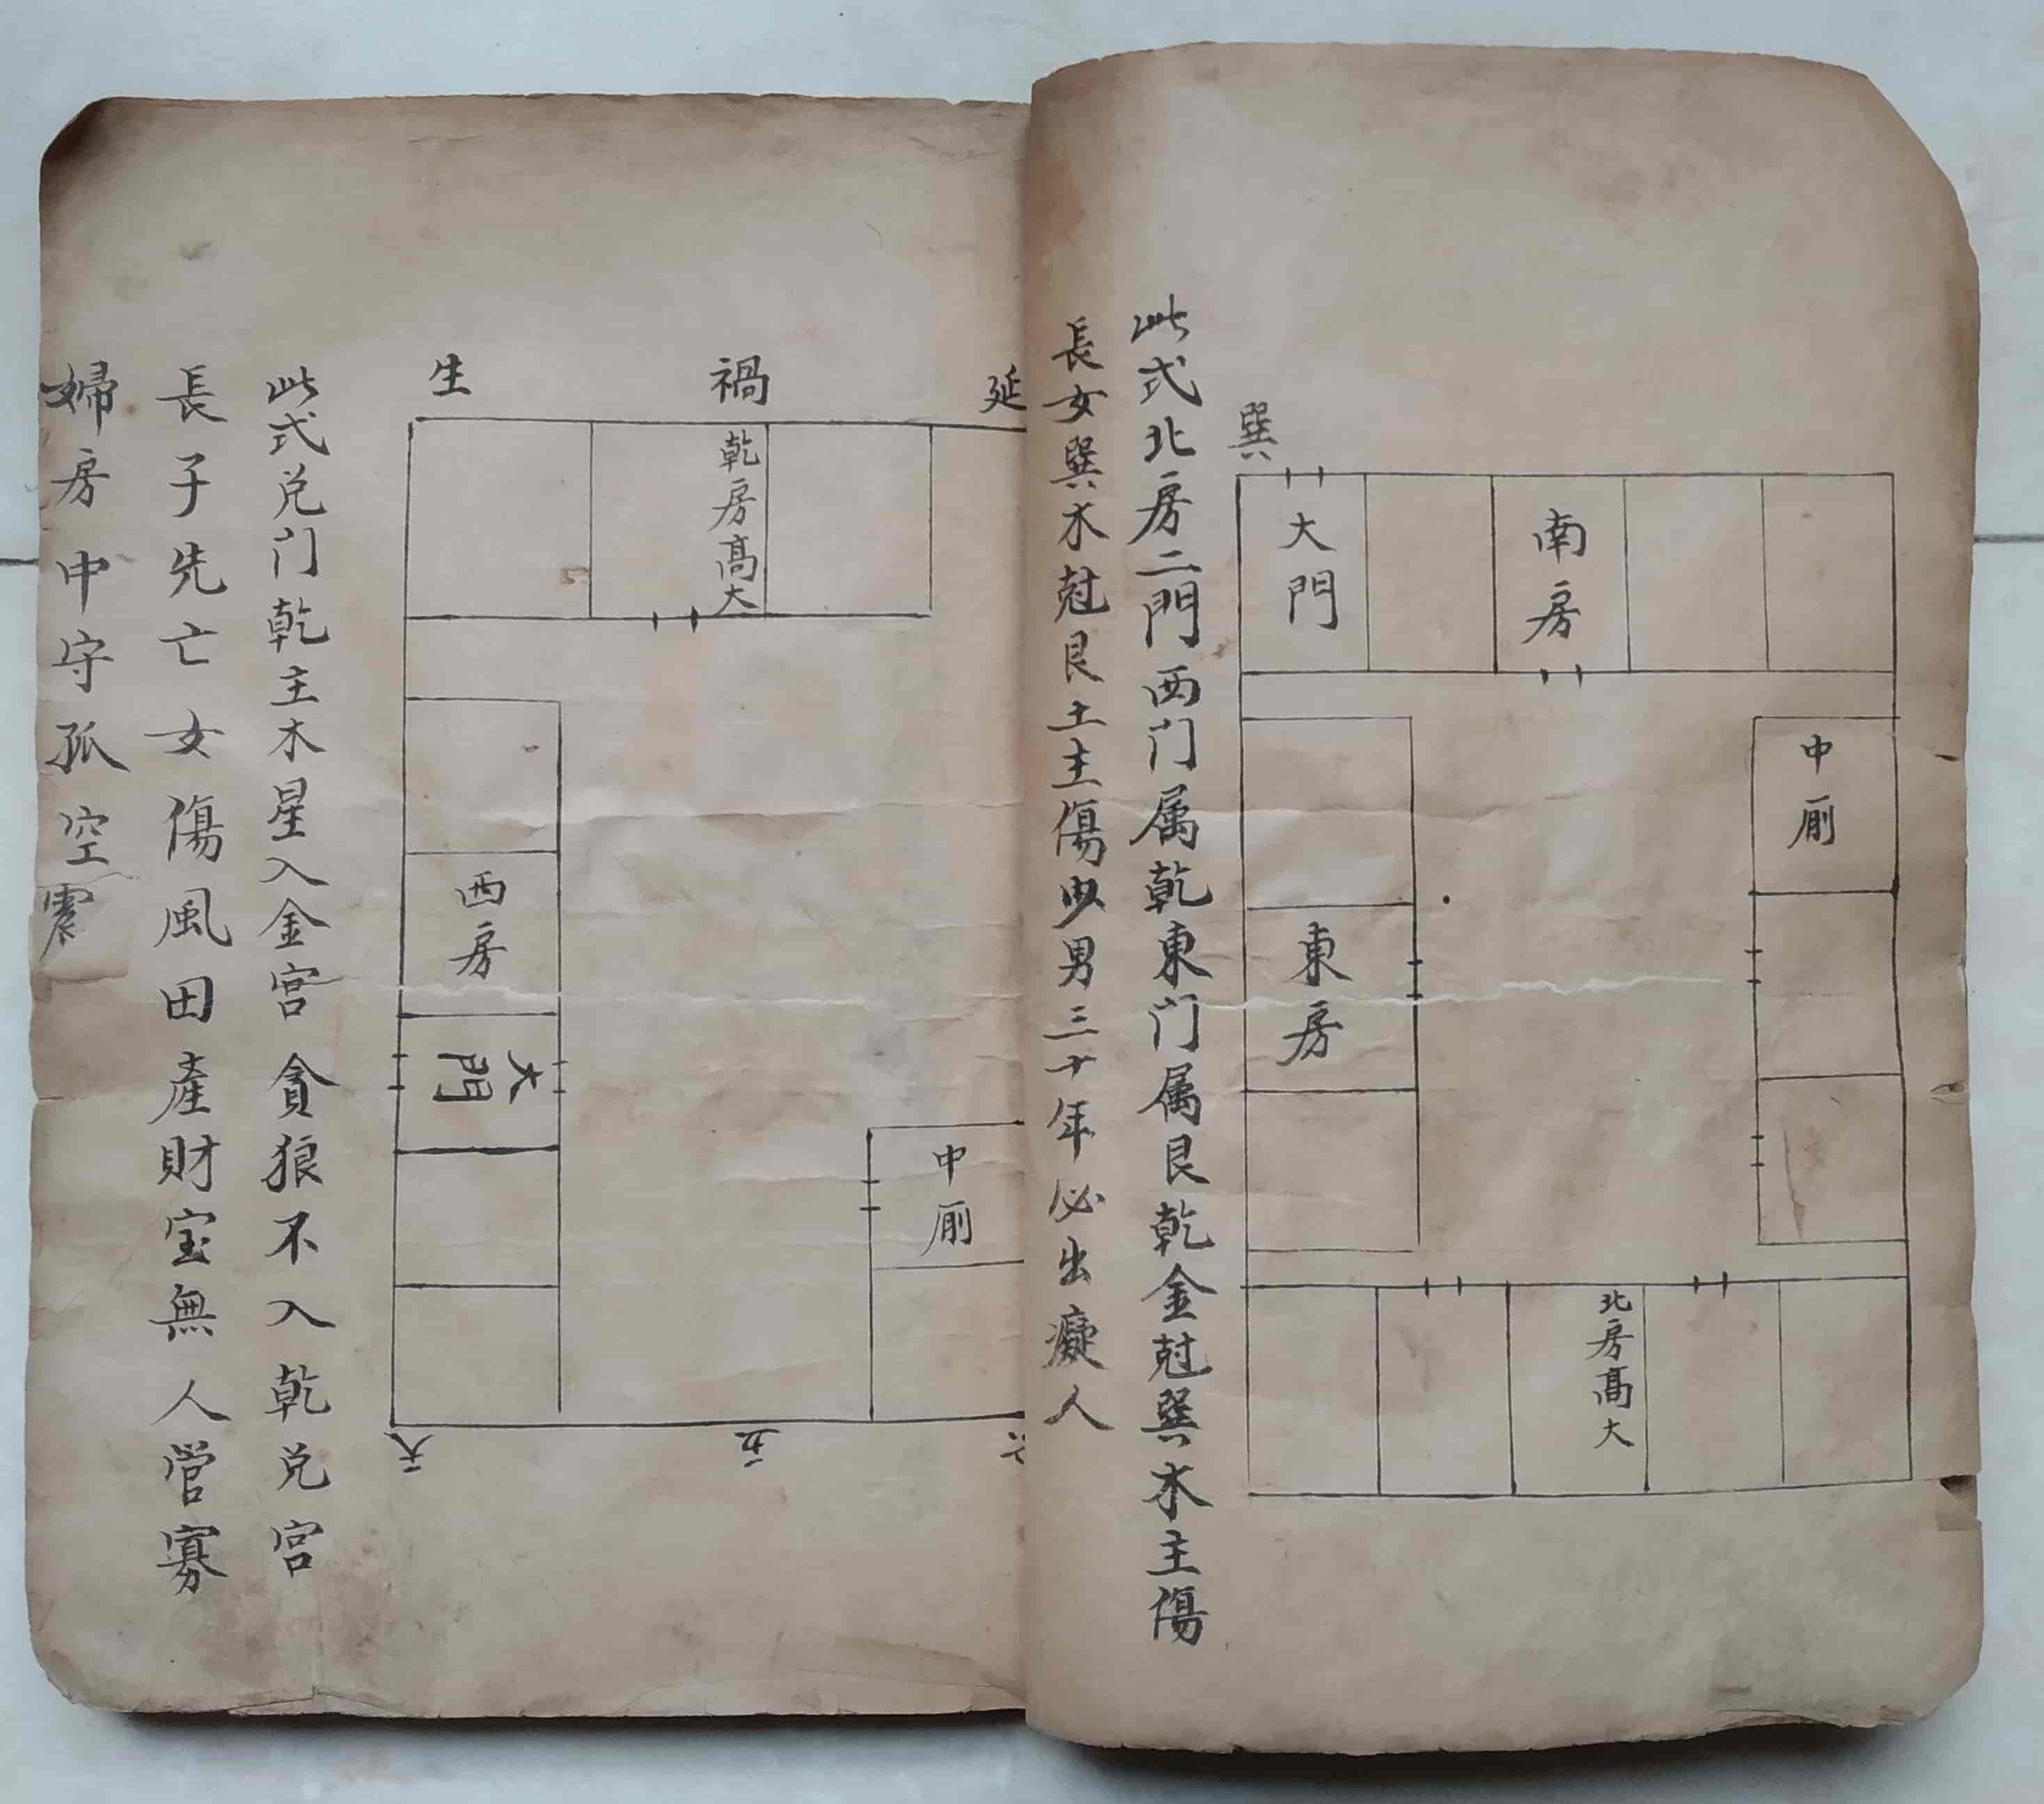 巽
大門
南房
中厠
東房
北房高大
此式北房二門西门属乾東门属艮乾金尅巽木主傷
長女巽木尅艮土主傷少男三十年必出癡人
延
禍
生
乾房高大
西房
大門
中厠
六
五
天
此式兑门乾主木星入金宫貪狼不入乾兑宫
長子先亡女傷風田產財宝無人營寡
婦房中守孤空